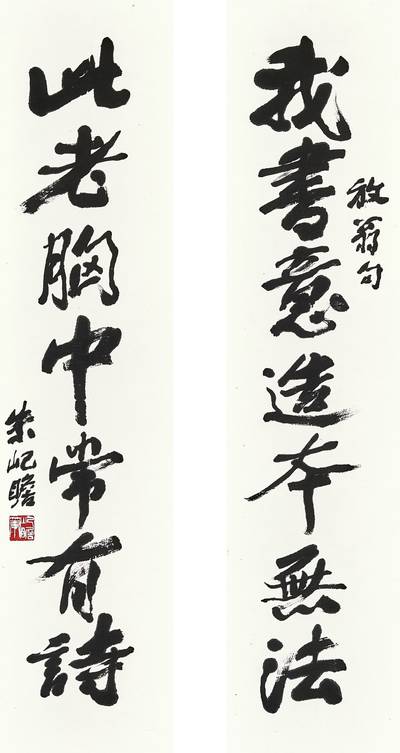 我書意造本無法
放翁句
此老胸中常有詩
朱屺瞻